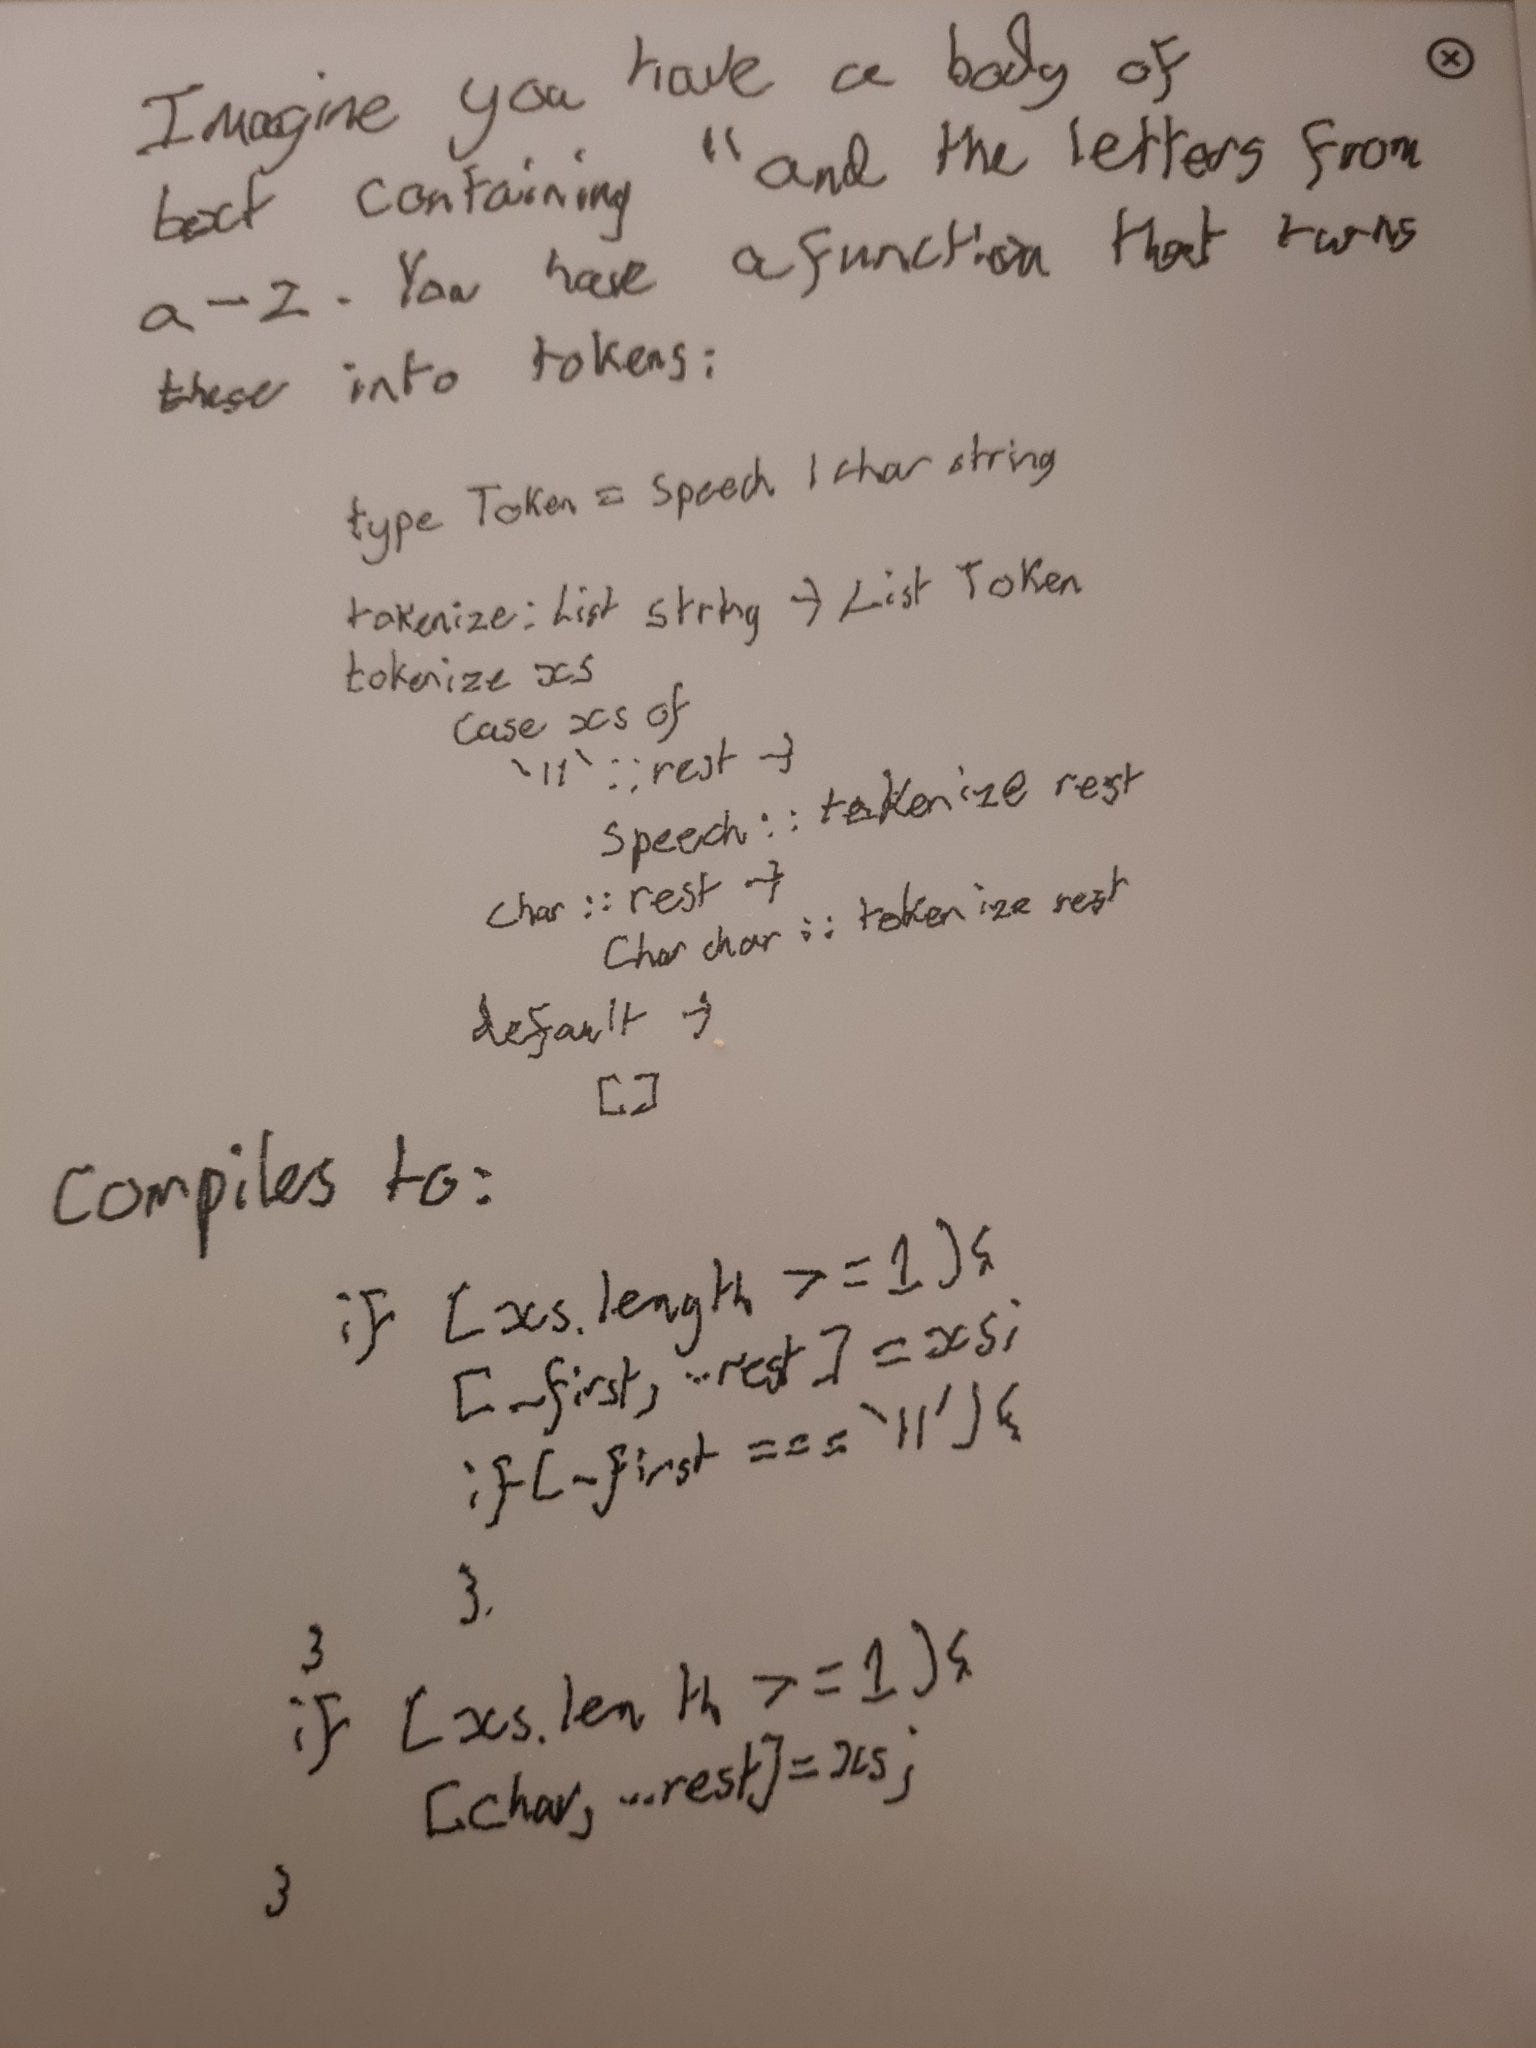 Imagine you have a body of
text containing " and the letters from
a-z. You have a function that turns
these into tokens:
type Token = Speech | Char string
tokenize: List string -> List Token
tokenize xs
case xs of
`"` :: rest ->
Speech :: tokenize rest
char :: rest ->
Char char :: tokenize rest
default ->
[]
Compiles to:
if (xs.length >= 1) {
[_first, ...rest] = xs;
if (_first === `"`) {
}
}
if (xs.lenth >= 1) {
[char, ...rest] = xs;
}